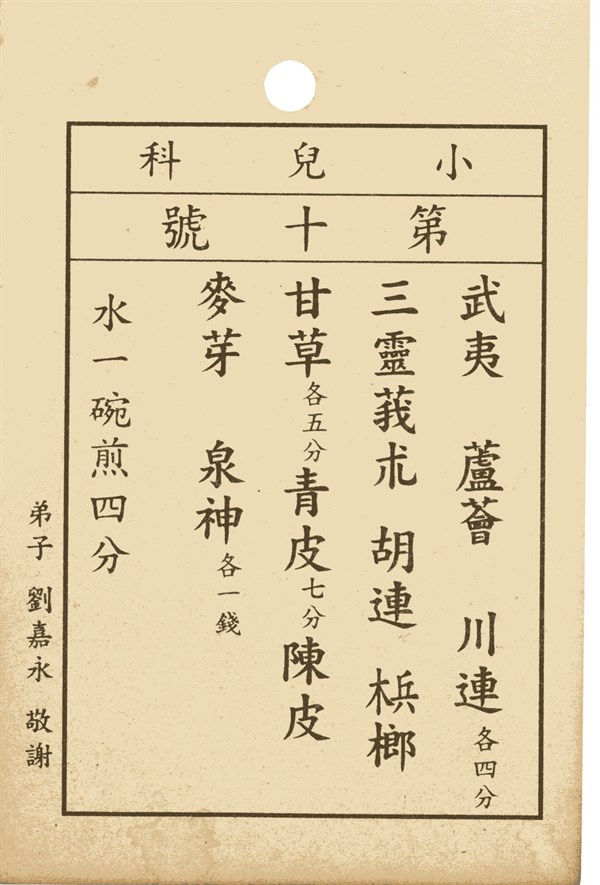 小兒科
第十號
武夷 蘆薈 川連各四分
三靈莪朮 胡連 梹榔
甘草各五分青皮七分陳皮
麥芽 泉神各一錢
水一碗煎四分
弟子 劉嘉永 敬謝